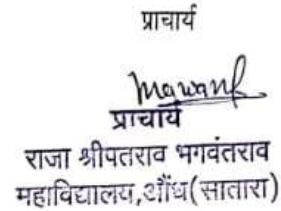 प्राचार्य
प्राचार्य
राजा श्रीपतराव भगवंतराव
महाविद्यालय,औंध(सातारा)